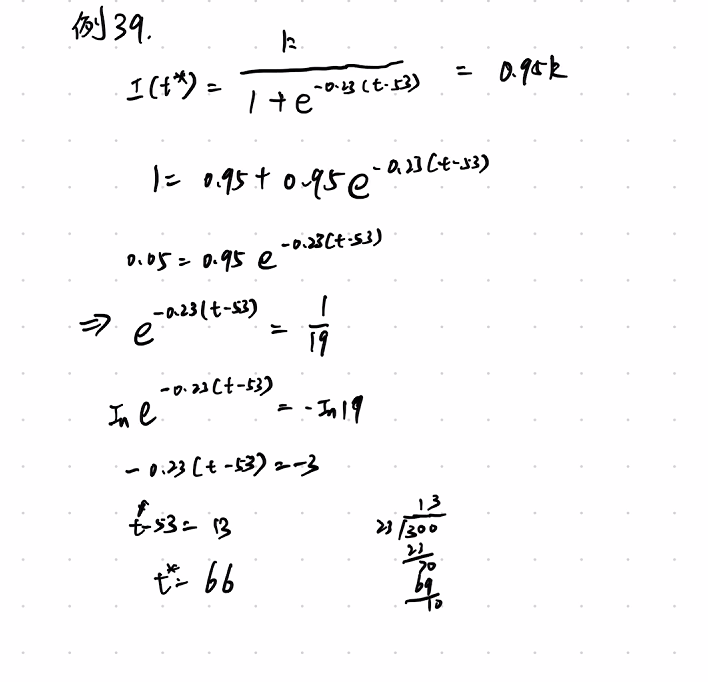 例39.
I(t*) = k / (1 + e^{-0.23(t-53)}) = 0.95k
1 = 0.95 + 0.95 e^{-0.23(t-53)}
0.05 = 0.95 e^{-0.23(t-53)}
⇒ e^{-0.23(t-53)} = 1/19
In e^{-0.23(t-53)} = -In19
-0.23(t-53) = -3
t*-53 = 13
13
23 √300
23
70
69
10
t* = 66